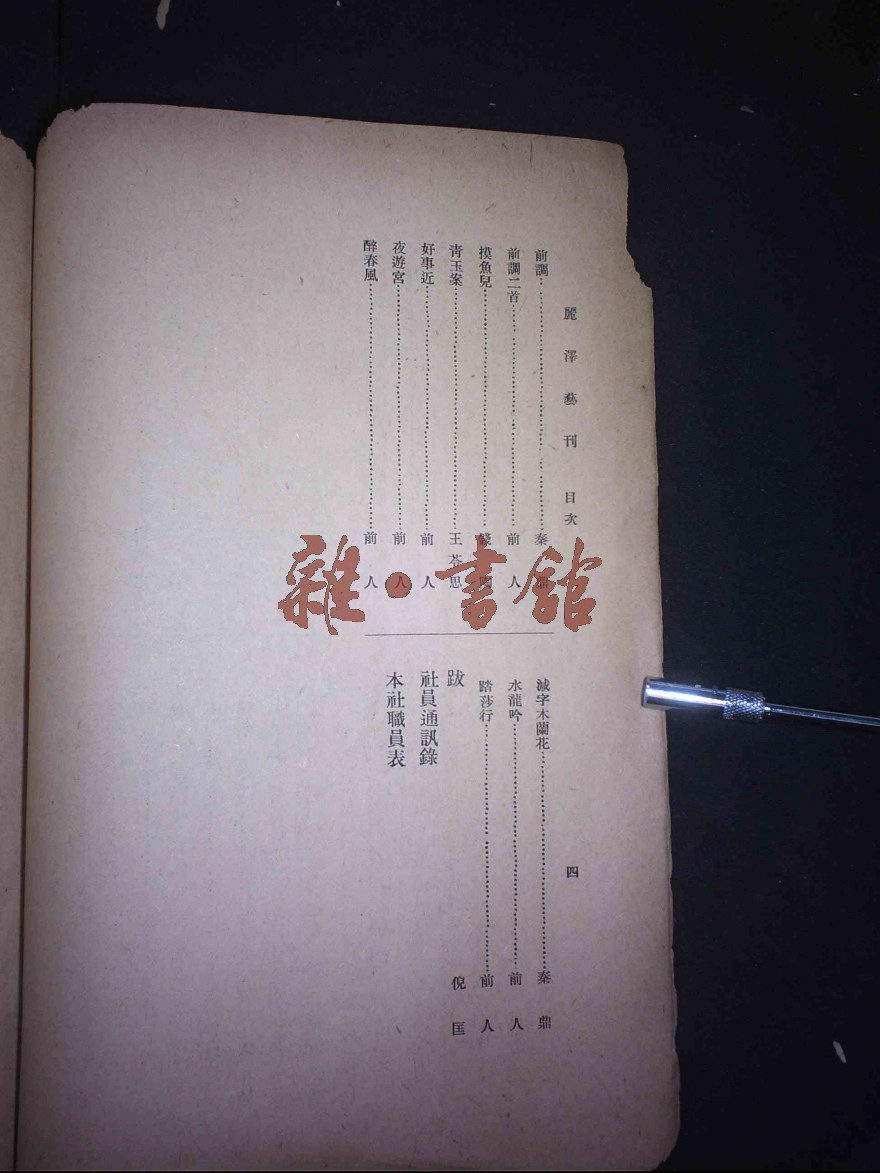 麗澤藝刊 目次 四
前調 秦鼎
前調二首 前人
摸魚兒
青玉案 王苓思
好事近 前人
夜遊宮 前人
醉春風 前人
減字木蘭花 秦鼎
水龍吟 前人
踏莎行 前人
跋 倪匡
社員通訊錄
本社職員表
雜·書館